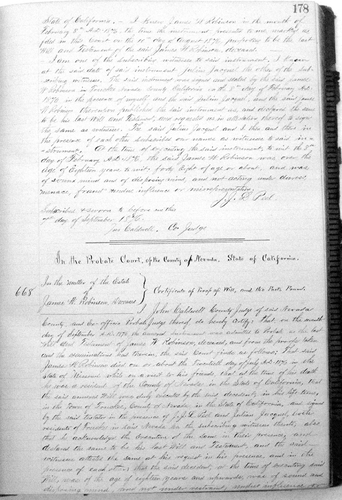 178
State of California, I knew James W. Robinson in the month of
February A.D. 1876, the time the instrument
in this Court on the day of 1876, to be the last
Will and Testament of the said James W. Robinson, deceased.
I am one of the subscribing witnesses to said instrument. I
at the said date of said instrument Julius Jacquet, the other of the
witness. The said instrument was signed and sealed by the said James
W. Robinson in County California on the 5th day of February A.D.
1876, in the presence of myself and the said Julius Jacquet, and the said James
W. Robinson published the said instrument as, and declared the same
to be his last Will and Testament, and requested us in attestation thereof to sign
the same as witnesses. The said Julius Jacquet and I, then and there, in
the presence of each other subscribed our names as witnesses to said
instrument. At the time of executing the said instrument, to wit, the 5th
day of February A.D. 1876, the said James W. Robinson, was over the
age of Eighteen years to wit, forty Eight of age or about, and was
of sound mind and of disposing mind, and not acting under duress,
menace, fraud, undue influence or misrepresentation.
Subscribed & sworn to before me this
day of September, 1876
Jno. Caldwell. Co. Judge
In the Probate Court, of the County of Nevada, State of California.
In the matter of the Estate
668 of
James W. Robinson, Deceased
Certificate of Proof of Will, and the Facts Found.
I, John Caldwell County Judge of said Nevada
County, and Ex-officio Probate Judge thereof do hereby certify: That on the
day of September A.D. 1876, the annexed instrument was admitted to Probate as the last
Will and Testament of James W. Robinson, Deceased, and from the proofs taken
and the examinations had therein, the said Court finds as follows: That said
James W. Robinson died on or about the Twentieth day of A.D. 1876 in the
State of while on a visit to his friends, that at the time of his death
he was a resident of the County of Nevada in the State of California, that
the said annexed Will was duly executed by the said decedent, in his life time,
in the Town of County of Nevada in the State of California, and signed
by the said Testator in the presence of and Julius Jacquet, both
residents of in said Nevada Co. the subscribing witnesses thereto, also
that he acknowledged the execution of the same in their presence, and
declared the same to be his last Will and Testament, and the said
witnesses attested the same at his request in his presence and in the
presence of each other; that the said decedent, at the time of executing said
Will, was of the age of eighteen years and upwards, was of sound and
disposing mind, and not under restraint, undue influence or